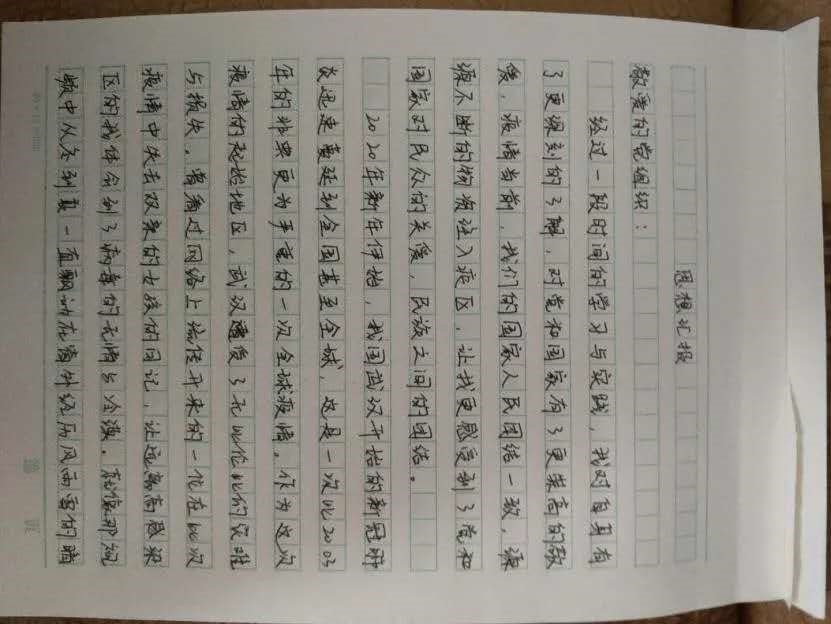 思想汇报
敬爱的党组织：
经过一段时间的学习与实践，我对自身有
了更深刻的了解，对党和国家有了更崇高的敬
爱，疫情当前，我们的国家人民团结一致，源
源不断的物资注入疫区，让我更感受到了党和
国家对民众的关爱，民族之间的团结。
2020年新年伊始，我国武汉开始的新冠肺
炎迅速蔓延到全国甚至全球，这是一次比2003
年的非典更为严重的一次全球疫情。作为这次
疫情的起始地区，武汉遭受了无比伦比的灾难
与损失，曾看过网络上流传开来的一位在此次
疫情中失去双亲的女孩的日记，让远离高感染
区的我体会到了病毒的无情与冷漠。就像那视
频中从冬到夏一直飘动在窗外经历风雨雪的腊